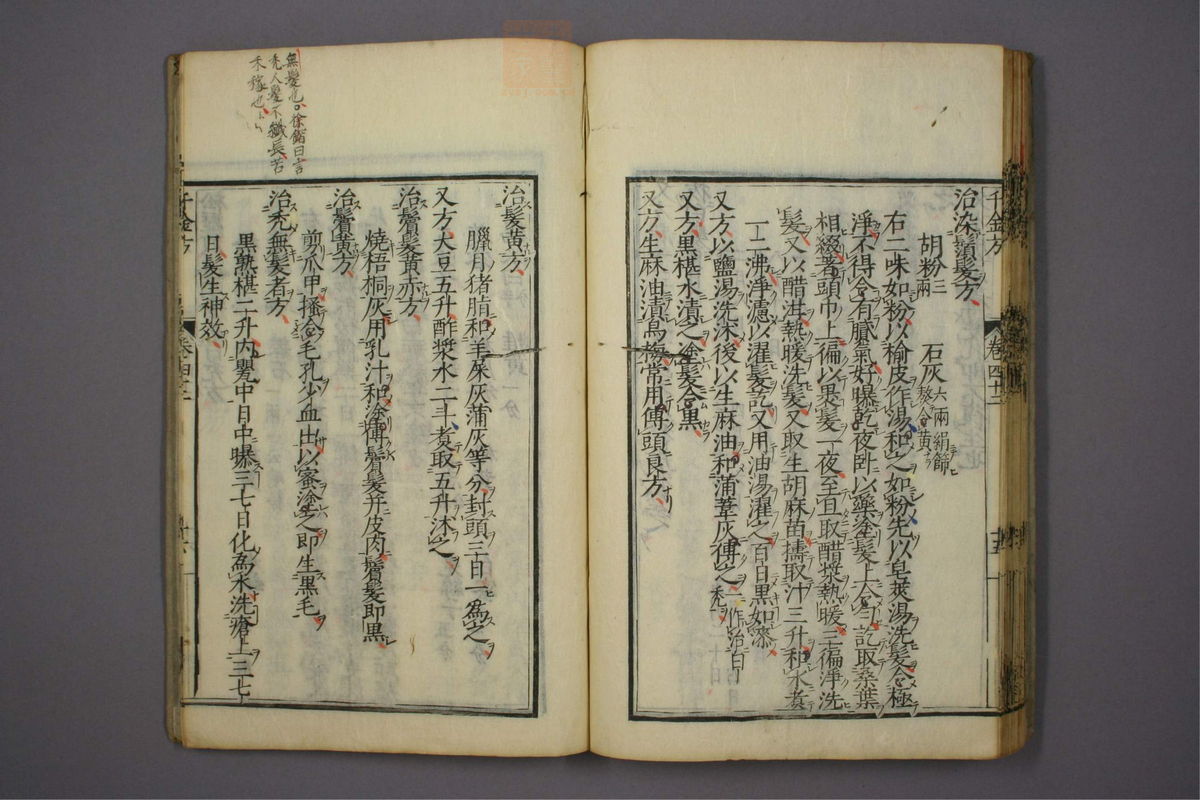 千金方 卷四十二 十五
治染鬚髮方
胡粉三兩 石灰六兩絹篩熬令黃
右二味如粉以榆皮作湯和之如粉先以皂莢湯洗髮令極
淨不得令有膩氣好曝乾夜卧以藥塗髮上令勻訖取桑葉
相綴著頭巾上徧以裹髮一夜至旦取醋漿熱暖三徧淨洗
髮又以醋泔熱暖洗髮又取生胡麻苗擣取汁三升和水煮
一二沸淨濾以濯髮訖又用油湯濯之百日黑如漆
又方以鹽湯洗沐後以生麻油和蒲葦灰傅之一作治白禿
又方黑椹水漬之塗髮令黑
又方生麻油漬烏梅常用傅頭良方
無髮也徐鍇曰言
禿人髮不纖長若
禾稼也
治髮黃方
臘月猪脂和羊屎灰蒲灰等分封頭三日一爲之
又方大豆五升酢漿水二斗煮取五升沐之
治鬢髮黃赤方
燒梧桐灰用乳汁和塗傅鬢髮并皮肉鬢髮即黑
治鬢黃方
剪爪甲搔令毛孔少血出以蜜塗之即生黑毛
治禿無髮者方
黑熟椹二升內甖中日中曝三七日化爲水洗瘡上三七
日髮生神效
千金方 卷四十二 十六